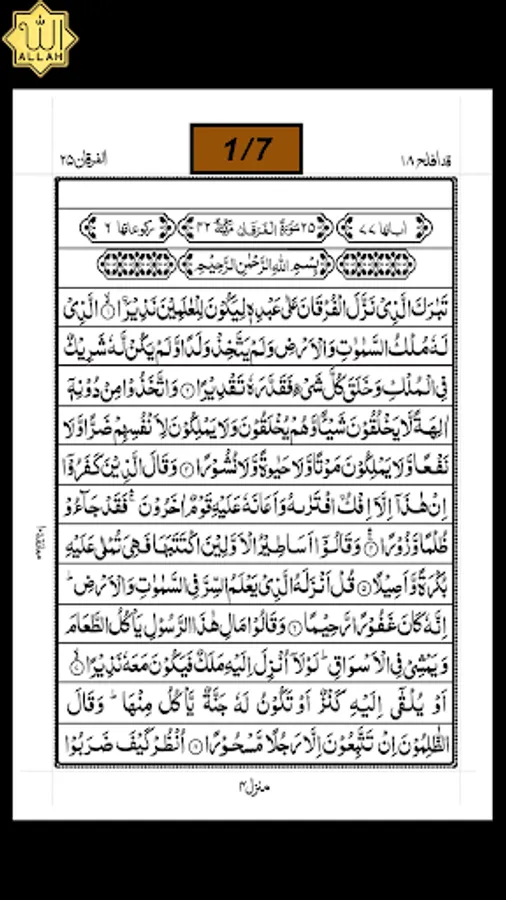 الله
ALLAH
1/7
قد افلح ١٨
الفرقان ٢٥
اٰیاتها ٧٧
٢٥ سُوْرَةُ الْفُرْقَانِ مَكِّيَّةٌ ٤٢
ركوعاتها ٦
بِسْمِ اللهِ الرَّحْمٰنِ الرَّحِيْمِ
تَبٰرَكَ الَّذِيْ نَزَّلَ الْفُرْقَانَ عَلٰى عَبْدِهٖ لِيَكُوْنَ لِلْعٰلَمِيْنَ نَذِيْرَا ۙ﴿١﴾ الَّذِيْ
لَهٗ مُلْكُ السَّمٰوٰتِ وَالْاَرْضِ وَلَمْ يَتَّخِذْ وَلَدًا وَّلَمْ يَكُنْ لَّهٗ شَرِيْكٌ
فِي الْمُلْكِ وَخَلَقَ كُلَّ شَيْءٍ فَقَدَّرَهٗ تَقْدِيْرًا ﴿٢﴾ وَاتَّخَذُوْا مِنْ دُوْنِهٖۤ
اٰلِهَةً لَّا يَخْلُقُوْنَ شَيْـًٔا وَّهُمْ يُخْلَقُوْنَ وَلَا يَمْلِكُوْنَ لِاَنْفُسِهِمْ ضَرًّا وَّلَا
نَفْعًا وَّلَا يَمْلِكُوْنَ مَوْتًا وَّلَا حَيٰوةً وَّلَا نُشُوْرًا ﴿٣﴾ وَقَالَ الَّذِيْنَ كَفَرُوْۤا
اِنْ هٰذَاۤ اِلَّاۤ اِفْكُ ۨافْتَرٰىهُ وَاَعَانَهٗ عَلَيْهِ قَوْمٌ اٰخَرُوْنَ ۛۚ فَقَدْ جَآءُوْ
ظُلْمًا وَّزُوْرًا ۛۚ﴿٤﴾ وَقَالُوْۤا اَسَاطِيْرُ الْاَوَّلِيْنَ اكْتَتَبَهَا فَهِيَ تُمْلٰى عَلَيْهِ
بُكْرَةً وَّاَصِيْلًا ﴿٥﴾ قُلْ اَنْزَلَهُ الَّذِيْ يَعْلَمُ السِّرَّ فِي السَّمٰوٰتِ وَالْاَرْضِ ؕ
اِنَّهٗ كَانَ غَفُوْرًا رَّحِيْمًا ﴿٦﴾ وَقَالُوْا مَالِ هٰذَا الرَّسُوْلِ يَاْكُلُ الطَّعَامَ
وَيَمْشِيْ فِي الْاَسْوَاقِ ؕ لَوْلَاۤ اُنْزِلَ اِلَيْهِ مَلَكٌ فَيَكُوْنَ مَعَهٗ نَذِيْرًا ۙ﴿٧﴾
اَوْ يُلْقٰۤى اِلَيْهِ كَنْزٌ اَوْ تَكُوْنُ لَهٗ جَنَّةٌ يَّاْكُلُ مِنْهَا ؕ وَقَالَ
الظّٰلِمُوْنَ اِنْ تَتَّبِعُوْنَ اِلَّا رَجُلًا مَّسْحُوْرًا ﴿٨﴾ اُنْظُرْ كَيْفَ ضَرَبُوْا
منزل ٤